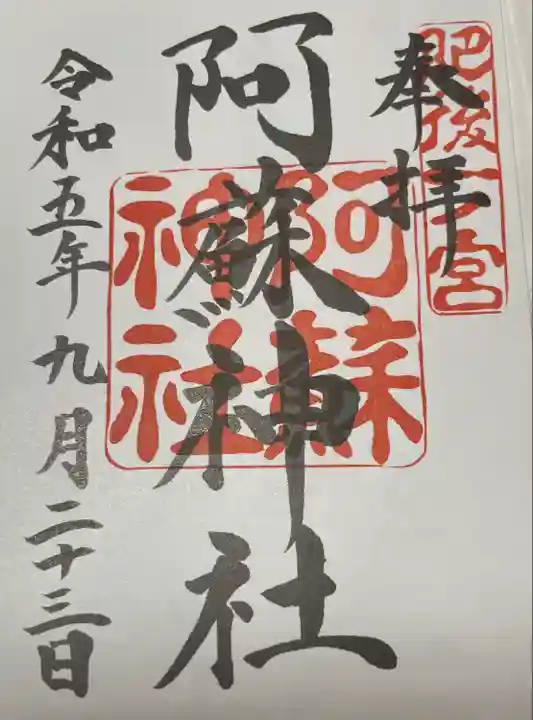 奉拝
肥後一之宮
阿蘇神社
阿蘇
神社
令和五年九月二十三日